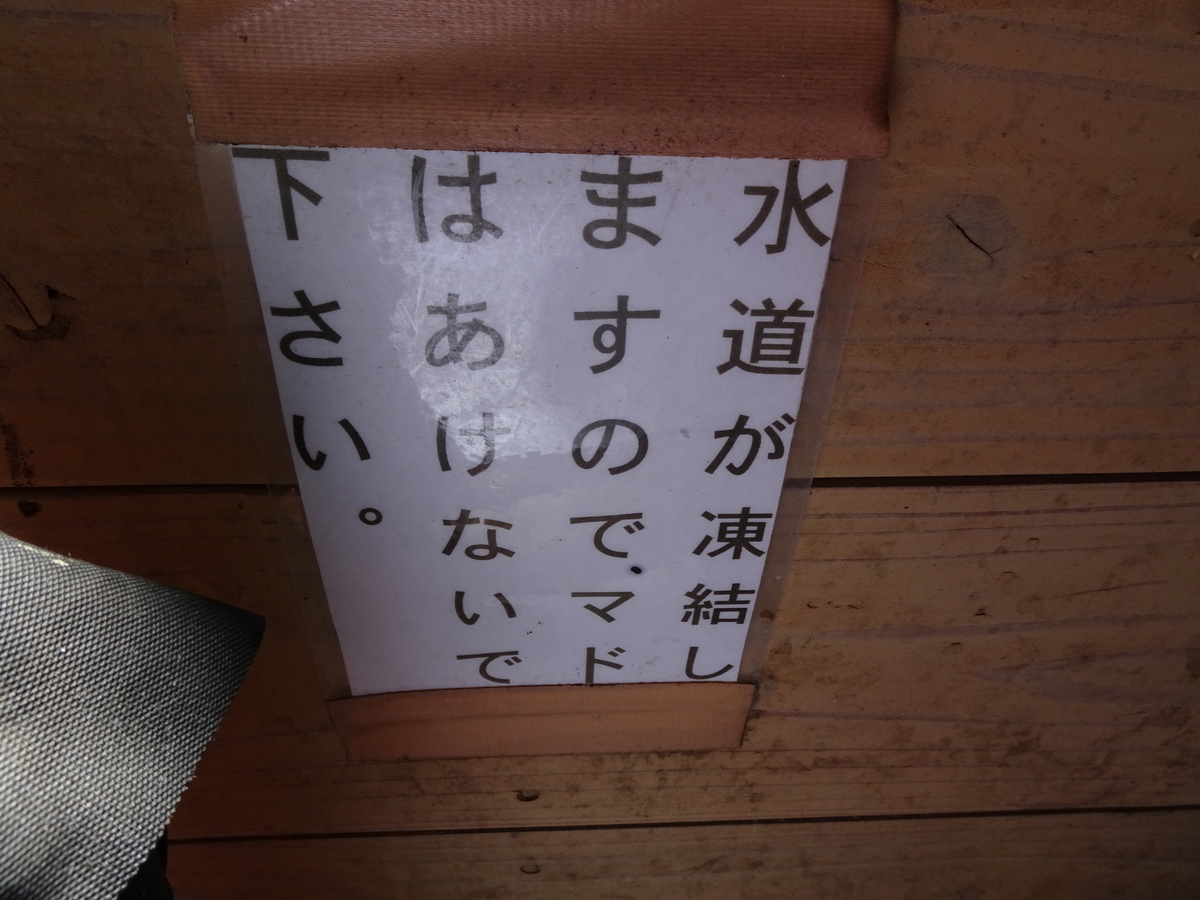 水道が凍結し
ますので.マド
はあけないで
下さい。